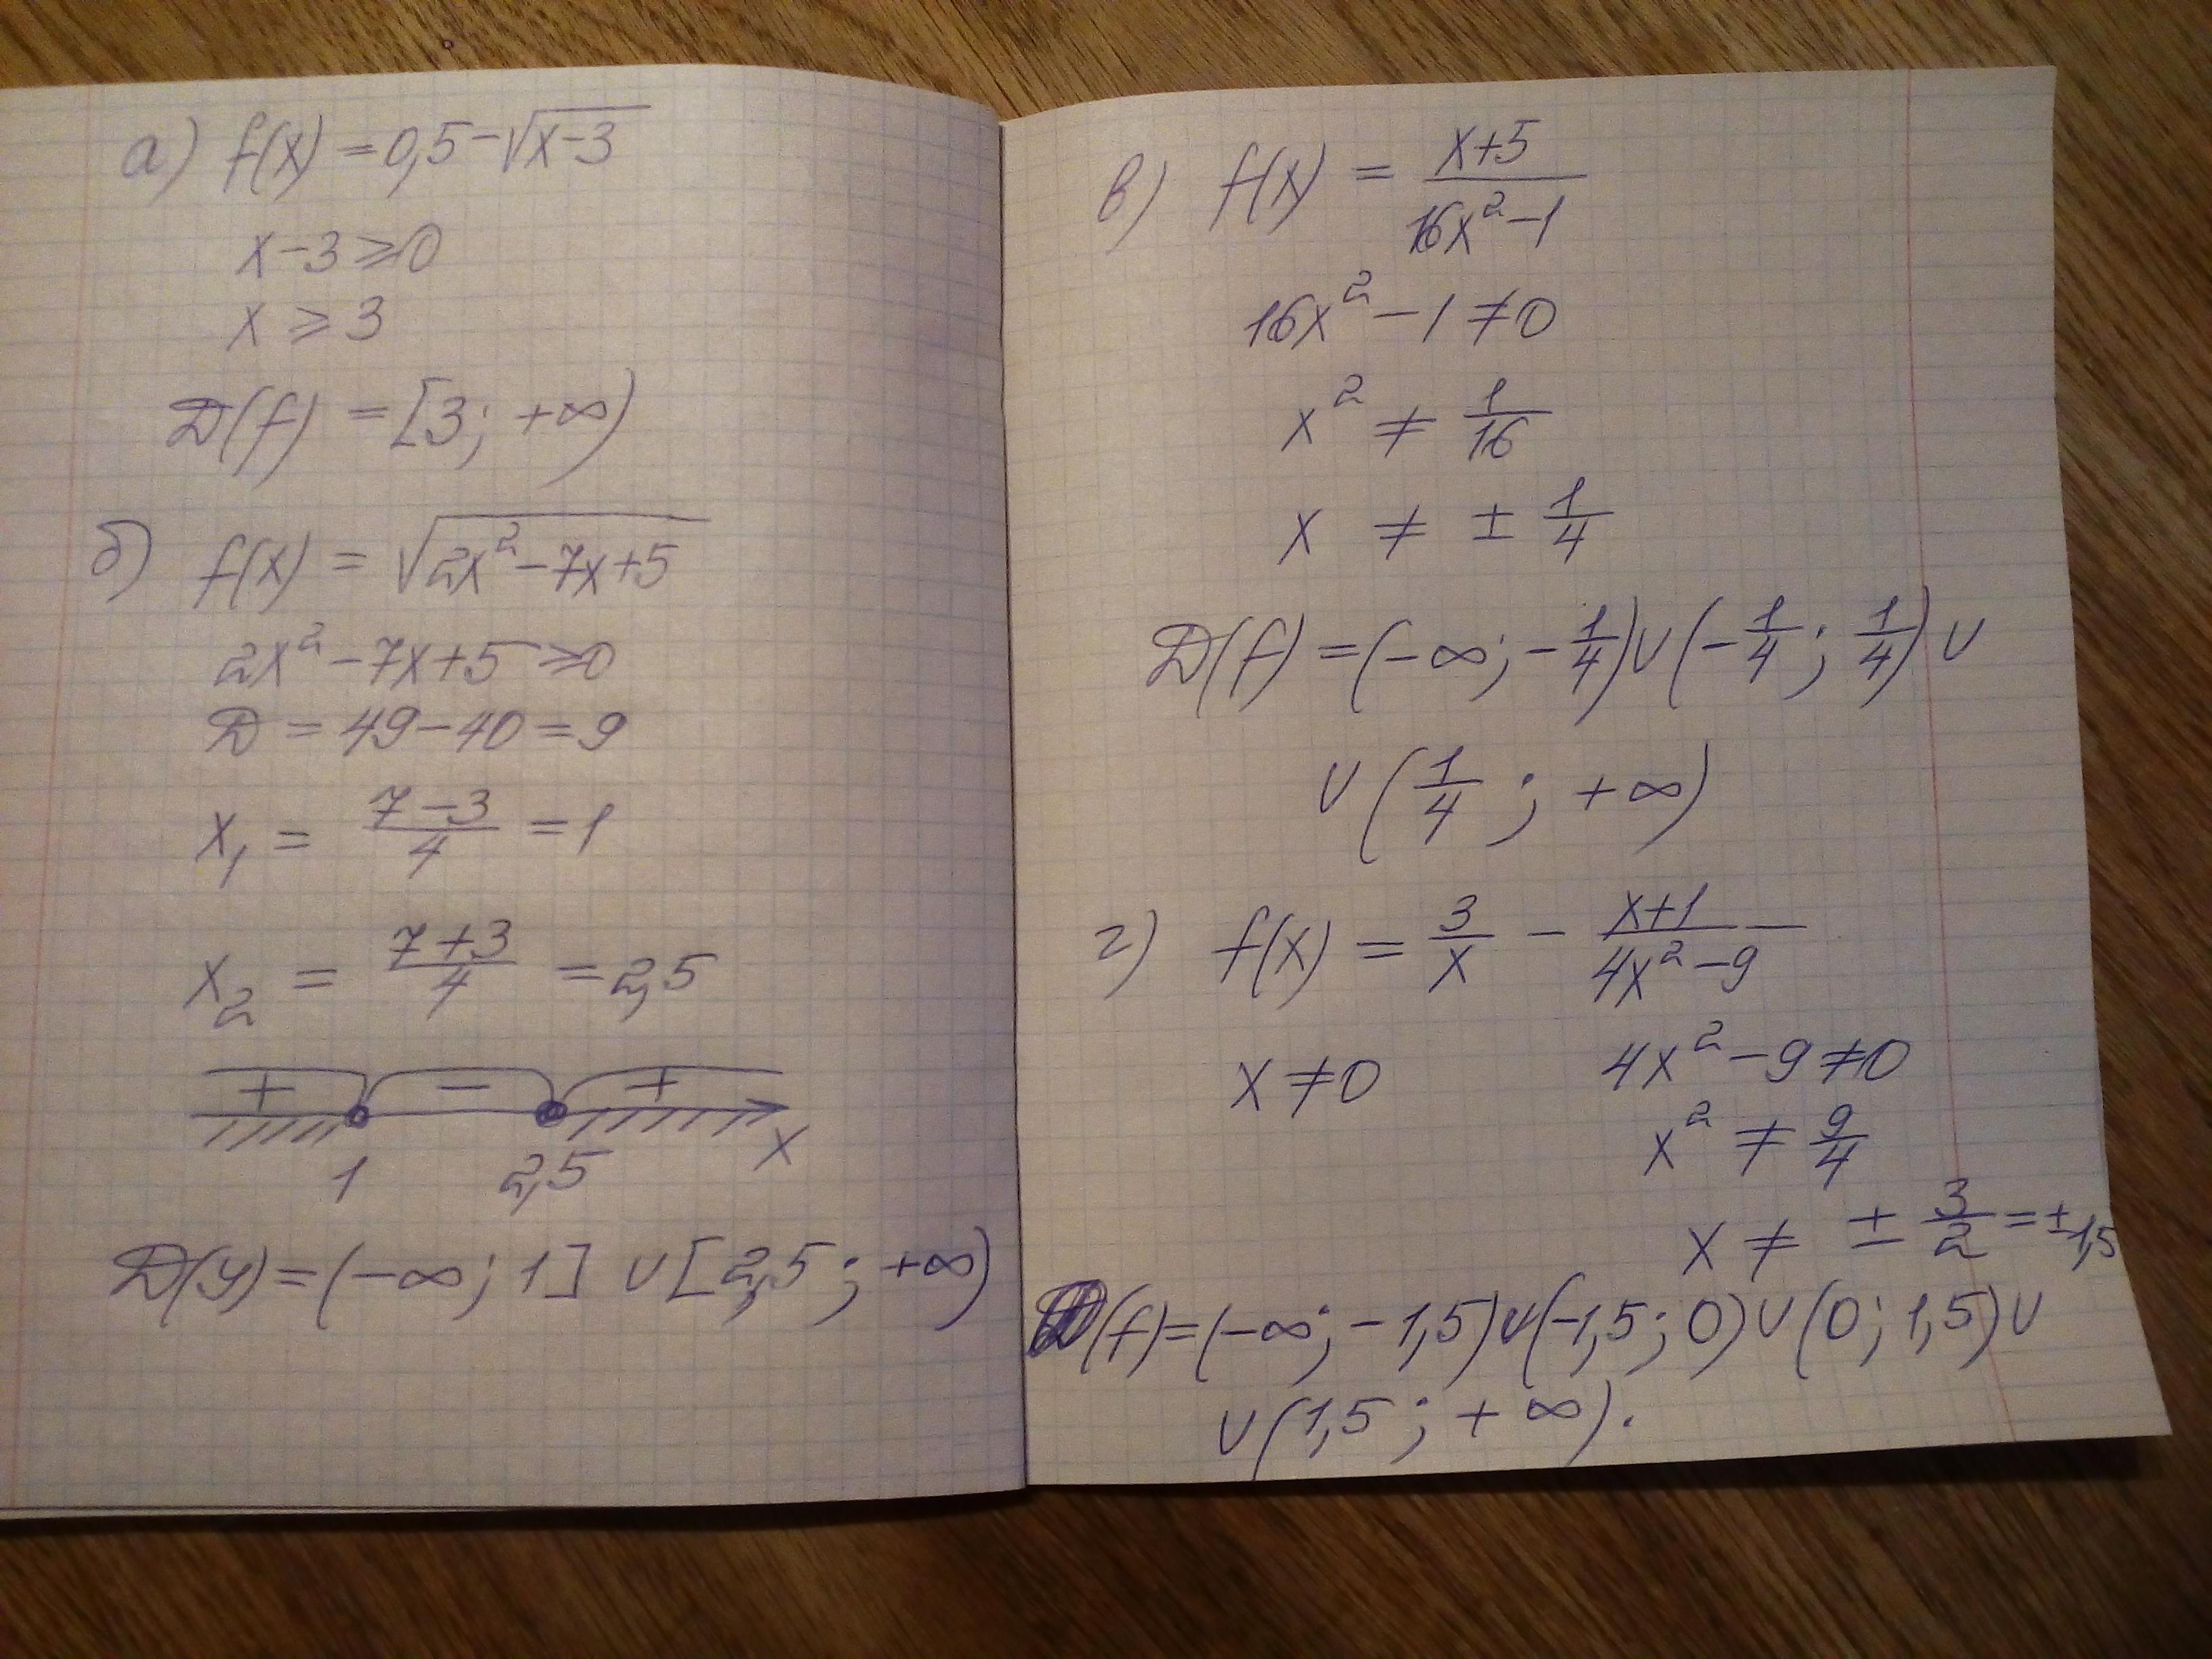 а) f(x) = 0,5 - √(x-3)
x-3 ⩾ 0
x ⩾ 3
D(f) = [3; +∞)
б) f(x) = √(2x² - 7x + 5)
2x² - 7x + 5 ⩾ 0
D = 49 - 40 = 9
x₁ = (7-3)/4 = 1
x₂ = (7+3)/4 = 2,5
+ - +
1 2,5 x
D(y) = (-∞; 1] ∪ [2,5; +∞)
в) f(x) = (x+5)/(16x² - 1)
16x² - 1 ≠ 0
x² ≠ 1/16
x ≠ ± 1/4
D(f) = (-∞; -1/4) ∪ (-1/4; 1/4) ∪
∪ (1/4; +∞)
г) f(x) = 3/x - (x+1)/(4x² - 9)
x ≠ 0 4x² - 9 ≠ 0
x² ≠ 9/4
x ≠ ± 3/2 = ± 1,5
D(f) = (-∞; -1,5) ∪ (-1,5; 0) ∪ (0; 1,5) ∪
∪ (1,5; +∞).